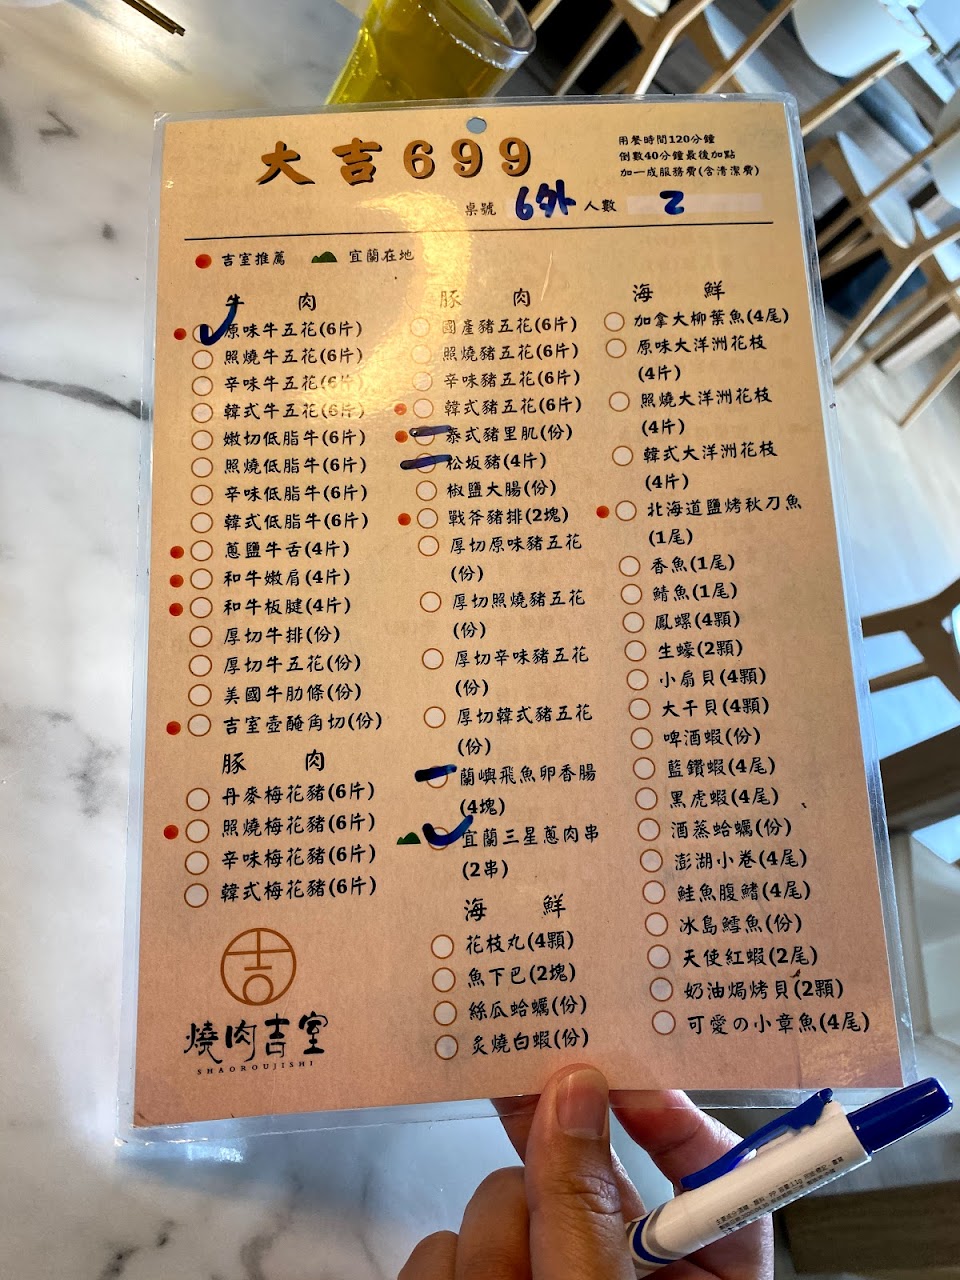 大吉699
用餐時間120分鐘
倒數40分鐘最後加點
加一成服務費(含清潔費)
桌號 6外 人數 2
吉室推薦 宜蘭在地
牛肉
原味牛五花(6片)
照燒牛五花(6片)
辛味牛五花(6片)
韓式牛五花(6片)
嫩切低脂牛(6片)
照燒低脂牛(6片)
辛味低脂牛(6片)
韓式低脂牛(6片)
蔥鹽牛舌(4片)
和牛嫩肩(4片)
和牛板腱(4片)
厚切牛排(份)
厚切牛五花(份)
美國牛肋條(份)
吉室壺醃角切(份)
豚肉
丹麥梅花豬(6片)
照燒梅花豬(6片)
辛味梅花豬(6片)
韓式梅花豬(6片)
燒肉吉室
SHAOROUJISHI
豚肉
國產豬五花(6片)
照燒豬五花(6片)
辛味豬五花(6片)
韓式豬五花(6片)
泰式豬里肌(份)
松坂豬(4片)
椒鹽大腸(份)
戰斧豬排(2塊)
厚切原味豬五花
(份)
厚切照燒豬五花
(份)
厚切辛味豬五花
(份)
厚切韓式豬五花
(份)
蘭嶼飛魚卵香腸
(4塊)
宜蘭三星蔥肉串
(2串)
海鮮
花枝丸(4顆)
魚下巴(2塊)
絲瓜蛤蠣(份)
炙燒白蝦(份)
海鮮
加拿大柳葉魚(4尾)
原味大洋洲花枝
(4片)
照燒大洋洲花枝
(4片)
韓式大洋洲花枝
(4片)
北海道鹽烤秋刀魚
(1尾)
香魚(1尾)
鯖魚(1尾)
鳳螺(4顆)
生蠔(2顆)
小扇貝(4顆)
大干貝(4顆)
啤酒蝦(份)
藍鑽蝦(4尾)
黑虎蝦(4尾)
酒蒸蛤蠣(份)
澎湖小卷(4尾)
鮭魚腹鰭(4尾)
冰島鱈魚(份)
天使紅蝦(2尾)
奶油焗烤貝(2顆)
可愛の小章魚(4尾)